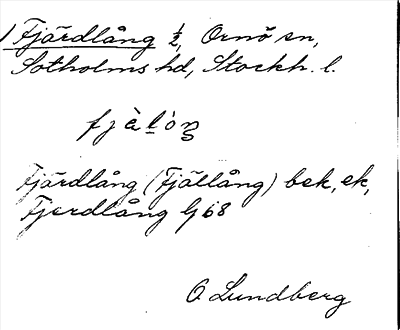 Fjärdlång ½, Ornö sn,
Sotholms hd, Stockh. l.
fjä̀lóŋ
Fjärdlång (Fjällång) bek, ek,
Fjerdlång Gj 68
O Lundberg